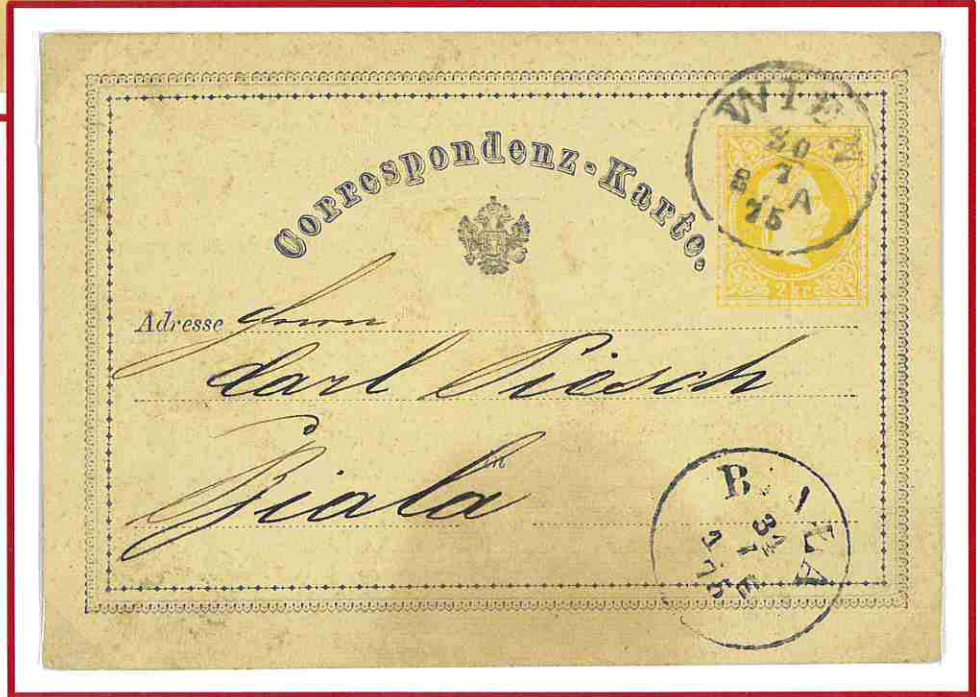 Correspondenz-Karte.
WIEN
7
8 A
75
2 kr
Adresse Herrn
Carl Piesch
in
Biala
BIALA
31
1
75